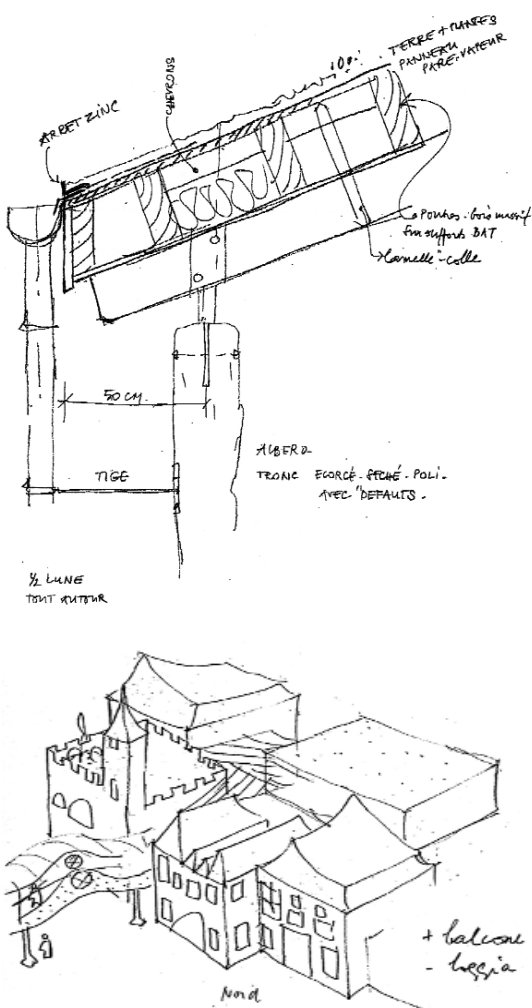 ARRET ZINC
CHEVRONS
TERRE + PLANTES
PANNEAU
PARE-VAPEUR
Poutres - bois massif
BAT
lamellé-collé
50 CM.
TIGE
ALBERO
TRONC ECORCÉ - SÉCHÉ - POLI -
AVEC "DEFAUTS -
½ LUNE
TOUT AUTOUR
+ balcone
- loggia
Nord